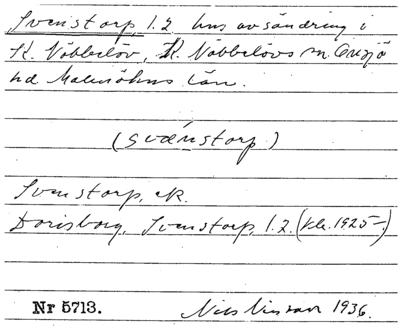 Svenstorp, 1.2 hus avsöndring i
K. Nöbbelöv, K. Nöbbelövs sn. Onsjö
hd Malmöhus län.
(svänstorp)
Svenstorp, ek.
Dorisborg, Svenstorp, 1.2. (kle. 1925–.)
Nr 5713. Nils Nilsson 1936.